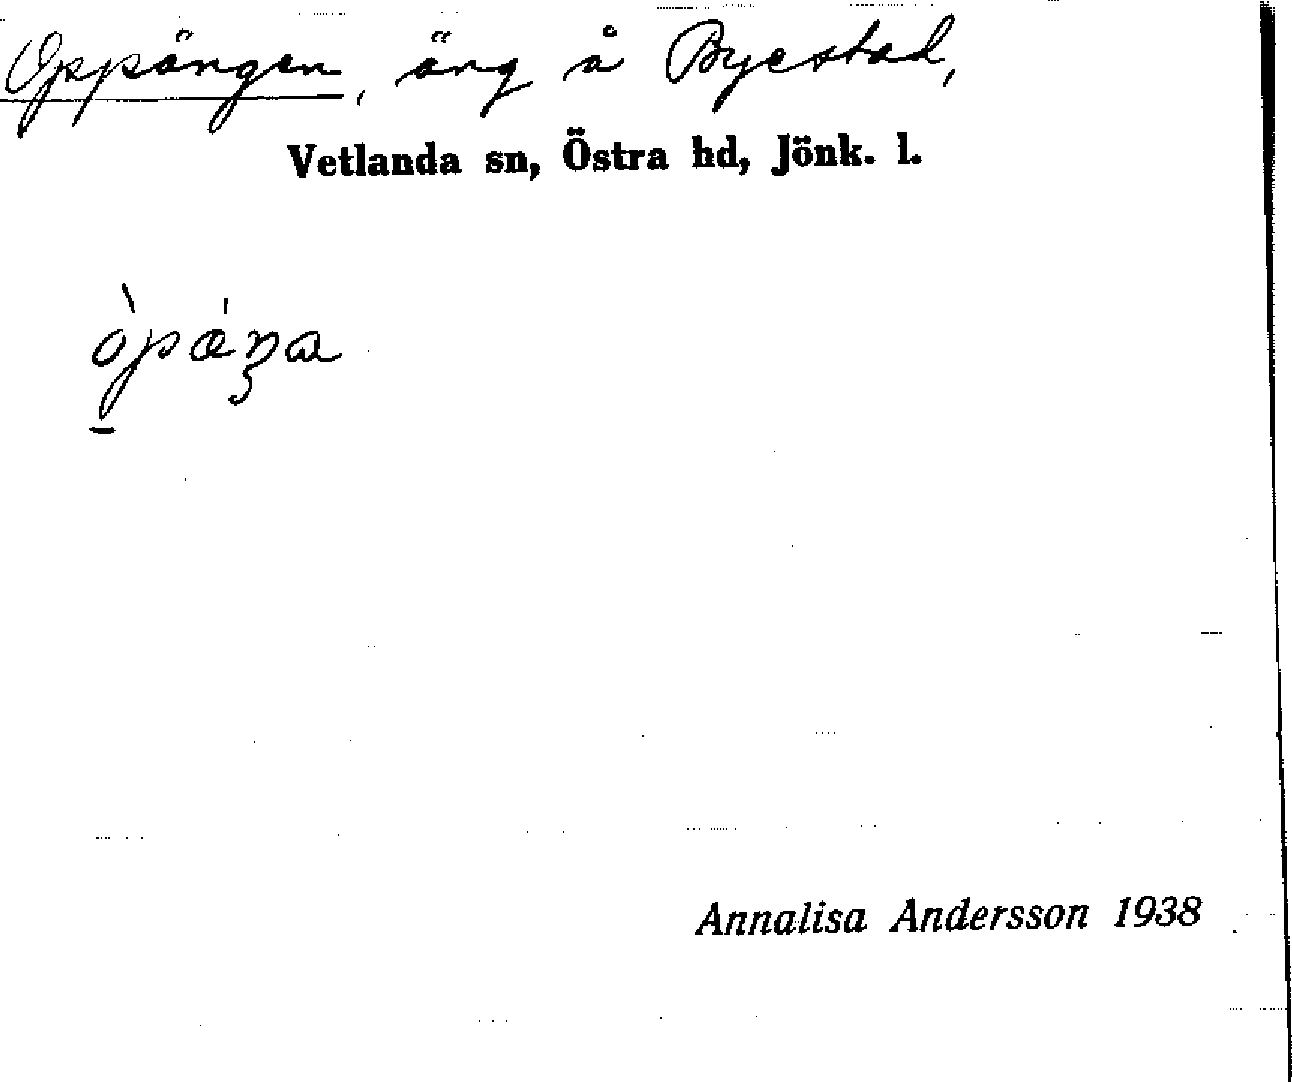 Oppängen, äng å Byestad,
Vetlanda sn, Östra hd, Jönk. l.
Annalisa Andersson 1938